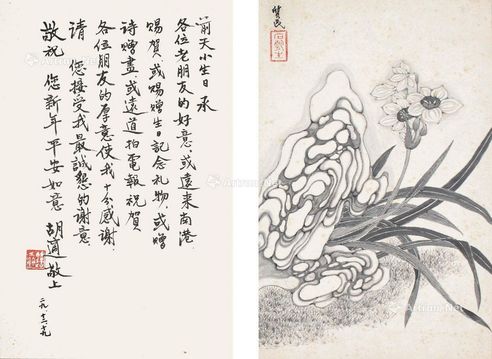 前天小生日承
各位老朋友的好意,或远来南港
賜賀,或賜贈生日記念礼物或贈
诗贈畫,或遠道拍電報祝賀
各位朋友的厚意使我十分感谢.
请 您接受我最誠懇的谢意
敬祝 您新年平安如意
胡適敬上
artron.net